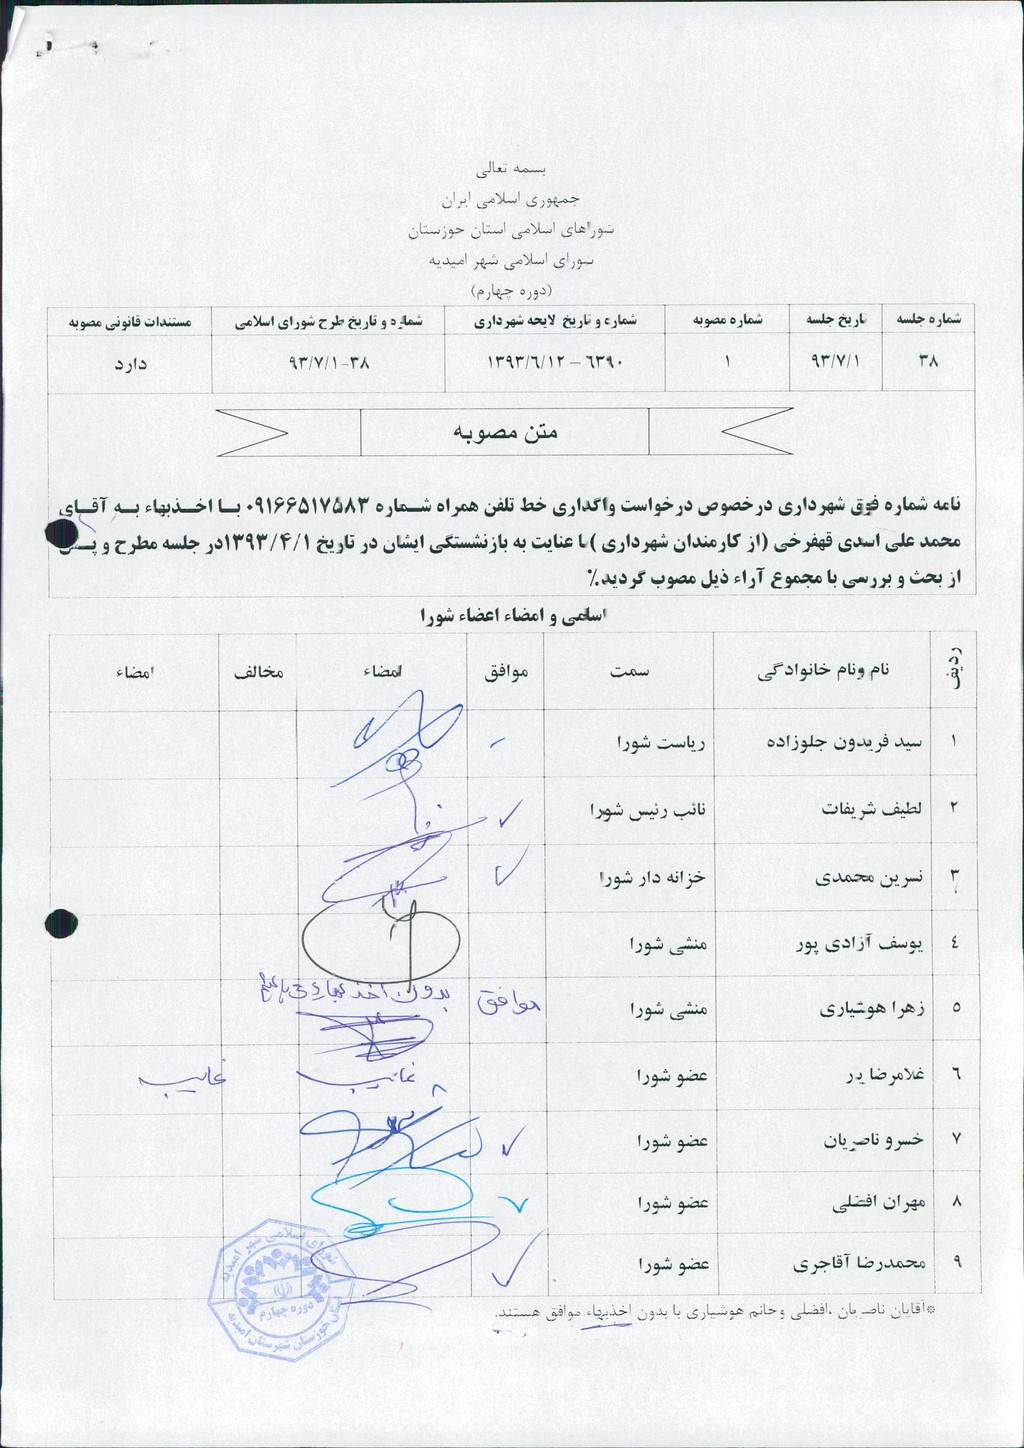 بسمه تعالی
جمهوری اسلامی ایران
شوراهای اسلامی استان خوزستان
شورای اسلامی شهر امیدیه
(دوره چهارم)
شماره جلسه | تاریخ جلسه | شماره مصوبه | شماره و تاریخ لایحه شهرداری | شماره و تاریخ طرح شورای اسلامی | مستندات قانونی مصوبه
۳۸ | ۹۳/۷/۱ | ۱ | ۶۳۹۰ – ۱۳۹۳/۶/۱۲ | ۳۸-۹۳/۷/۱ | دارد
متن مصوبه
نامه شماره فوق شهرداری درخصوص درخواست واگذاری خط تلفن همراه شماره ۰۹۱۶۶۵۱۷۵۸۳ با اخذبهاء به آقای
محمد علی اسدی قهفرخی (از کارمندان شهرداری )با عنایت به بازنشستگی ایشان در تاریخ ۱۳۹۳/۴/۱در جلسه مطرح و پس
از بحث و بررسی با مجموع آراء ذیل مصوب گردید.٪
اسامی و امضاء اعضاء شورا
ردیف | نام ونام خانوادگی | سمت | موافق | امضاء | مخالف | امضاء
۱ | سید فریدون جلوزاده | ریاست شورا
۲ | لطیف شریفات | نائب رئیس شورا
۳ | نسرین محمدی | خزانه دار شورا
۴ | یوسف آزادی پور | منشی شورا
۵ | زهرا هوشیاری | منشی شورا | موافق | بدون اخذ بهاء
۶ | غلامرضا | عضو شورا | غایب | غایب
۷ | خسرو ناصریان | عضو شورا
۸ | مهران افضلی | عضو شورا
۹ | محمدرضا آقاجری | عضو شورا
*آقایان ناصریان ،افضلی وخانم هوشیاری با بدون اخذبهاء موافق هستند.
شورای اسلامی شهر امیدیه
دوره چهارم
استان خوزستان شهرستان امیدیه